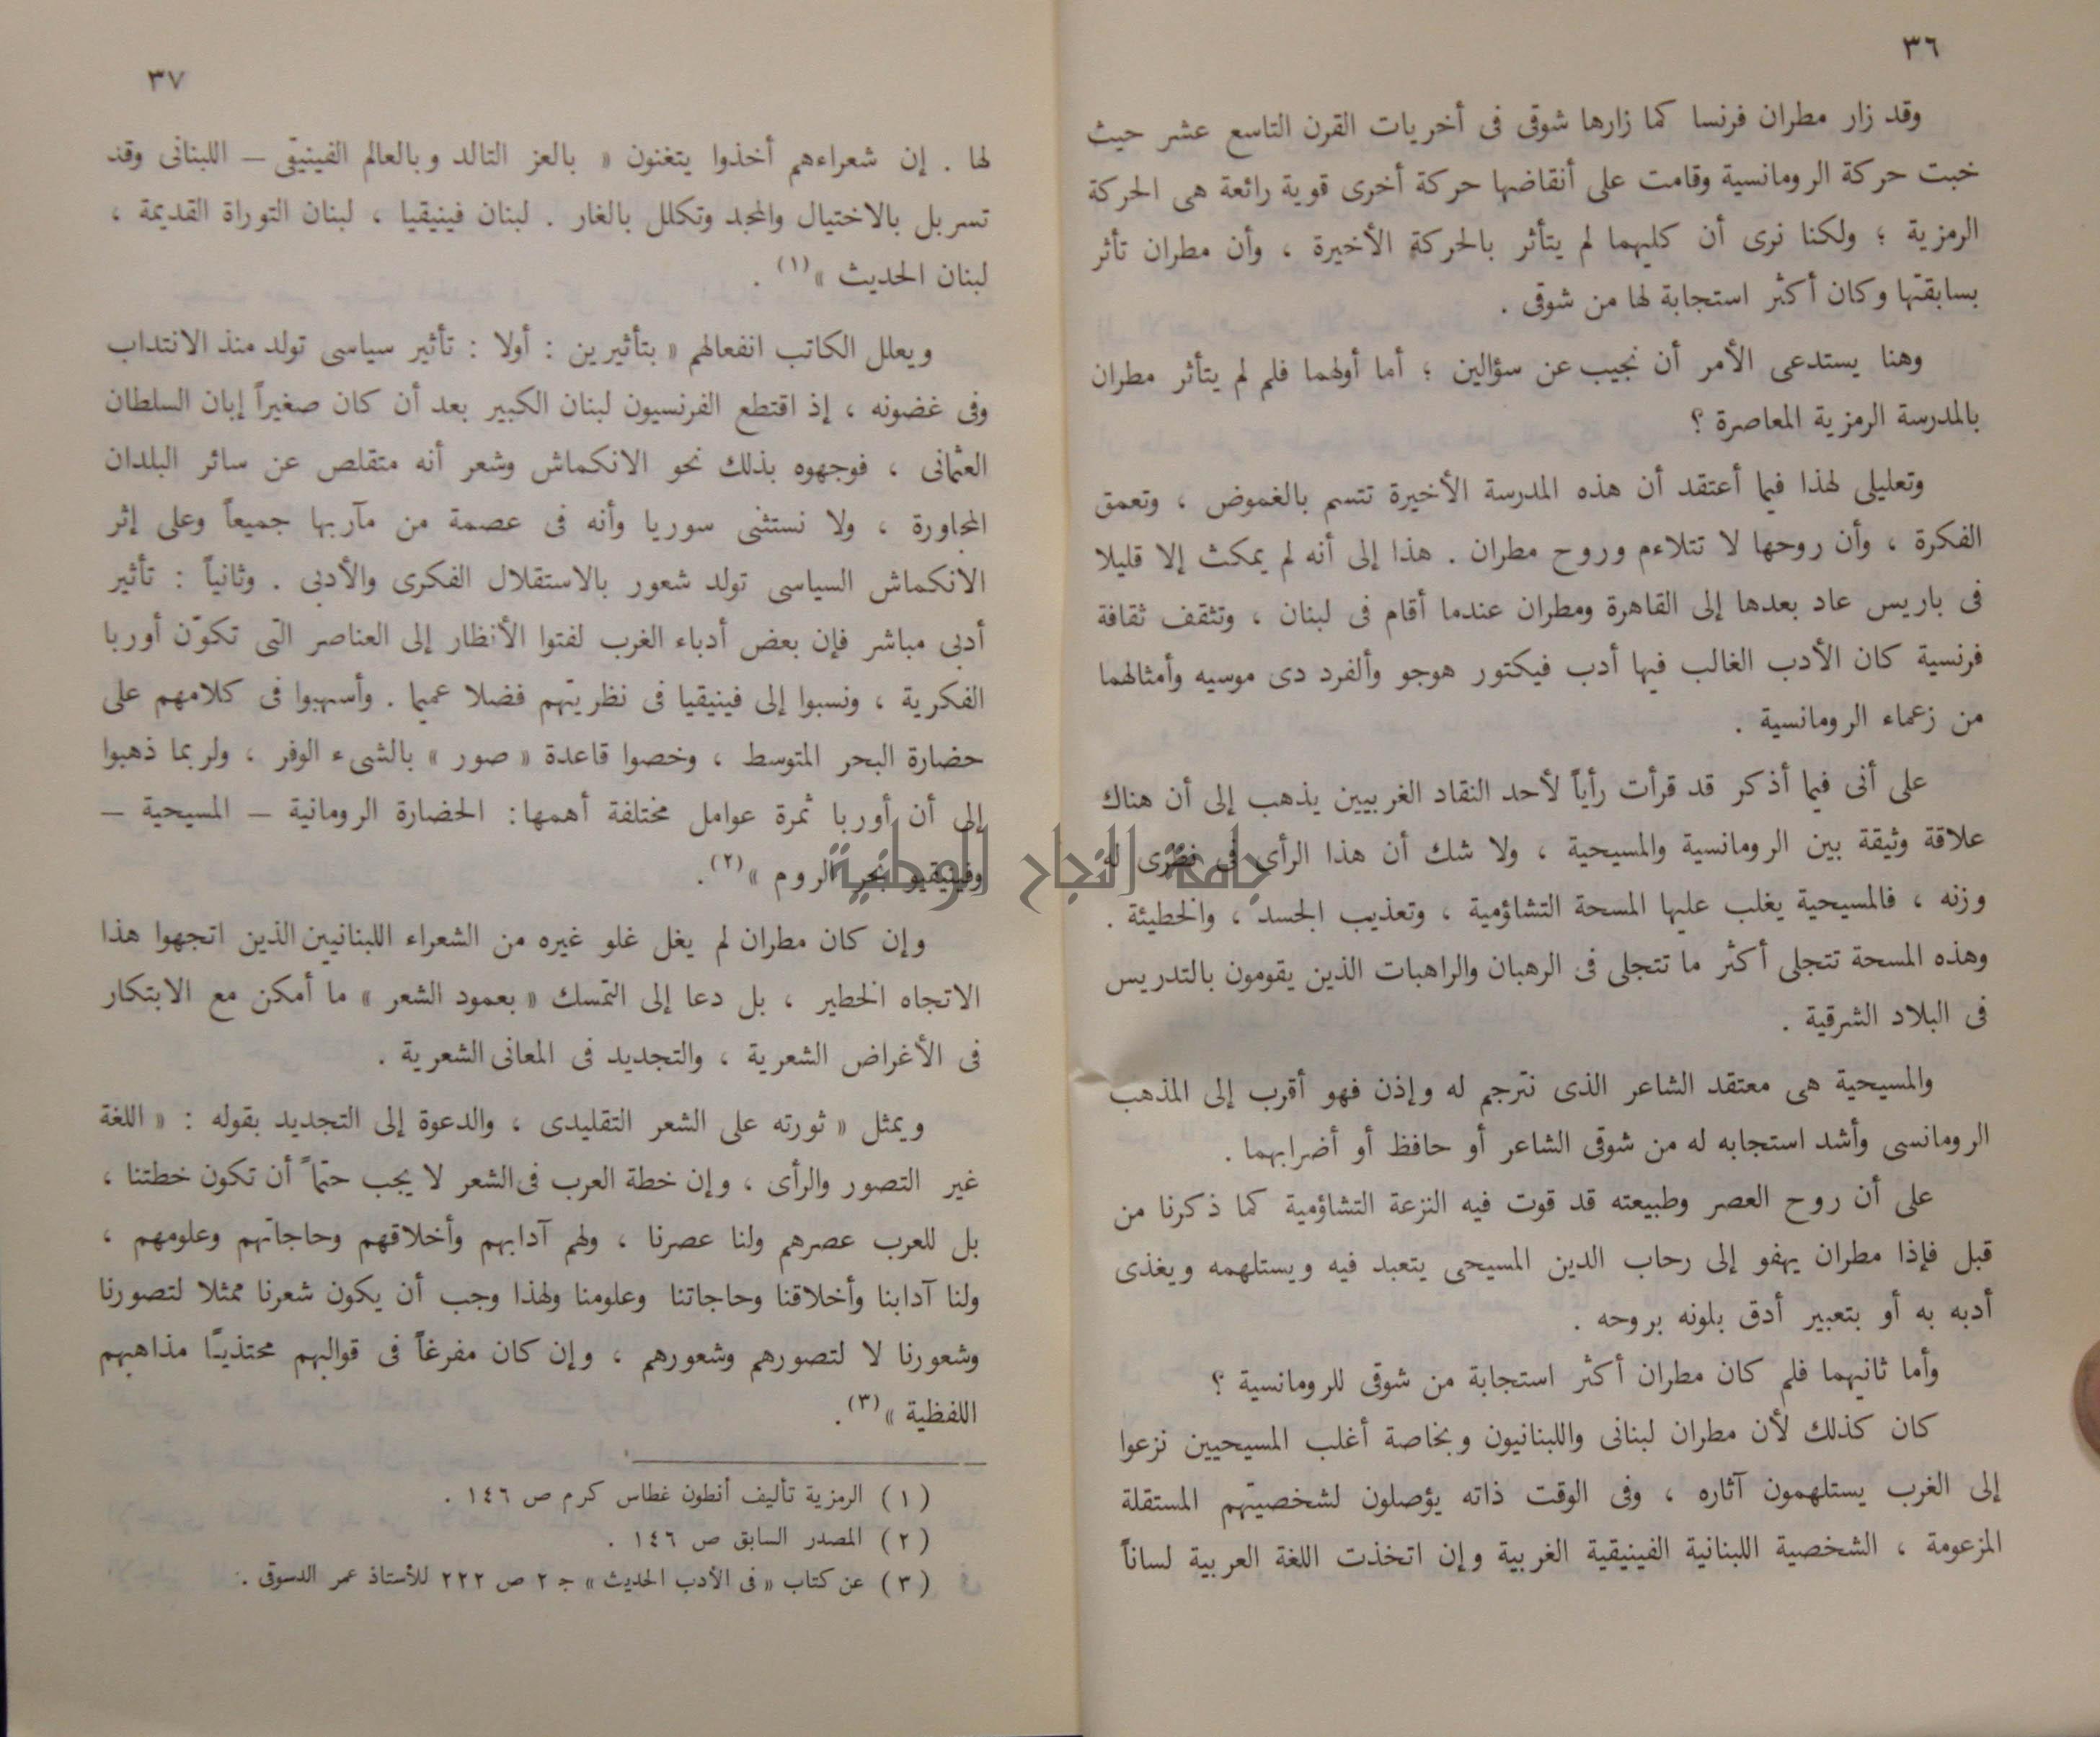 ٣٦
وقد زار مطران فرنسا كما زارها شوقى فى أخريات القرن التاسع عشر حيث
خبت حركة الرومانسية وقامت على أنقاضها حركة أخرى قوية رائعة هى الحركة
الرمزية ؛ ولكنا نرى أن كليهما لم يتأثر بالحركة الأخيرة ، وأن مطران تأثر
بسابقتها وكان أكثر استجابة لها من شوقى .
وهنا يستدعى الأمر أن نجيب عن سؤالين ؛ أما أولهما فلم لم يتأثر مطران
بالمدرسة الرمزية المعاصرة ؟
وتعليلى لهذا فيما أعتقد أن هذه المدرسة الأخيرة تتسم بالغموض ، وتعمق
الفكرة ، وأن روحها لا تتلاءم وروح مطران . هذا إلى أنه لم يمكث إلا قليلا
فى باريس عاد بعدها إلى القاهرة ومطران عندما أقام فى لبنان ، وتثقف ثقافة
فرنسية كان الأدب الغالب فيها أدب فيكتور هوجو وألفرد دى موسيه وأمثالهما
من زعماء الرومانسية .
على أنى فيما أذكر قد قرأت رأياً لأحد النقاد الغربيين يذهب إلى أن هناك
علاقة وثيقة بين الرومانسية والمسيحية ، ولا شك أن هذا الرأى فى نظرى له
وزنه ، فالمسيحية يغلب عليها المسحة التشاؤمية ، وتعذيب الجسد ، والخطيئة .
وهذه المسحة تتجلى أكثر ما تتجلى فى الرهبان والراهبات الذين يقومون بالتدريس
فى البلاد الشرقية .
والمسيحية هى معتقد الشاعر الذى نترجم له وإذن فهو أقرب إلى المذهب
الرومانسى وأشد استجابه له من شوقى الشاعر أو حافظ أو أضرابهما .
على أن روح العصر وطبيعته قد قوت فيه النزعة التشاؤمية كما ذكرنا من
قبل فإذا مطران يهفو إلى رحاب الدين المسيحى يتعبد فيه ويستلهمه ويغذى
أدبه به أو بتعبير أدق بلونه بروحه .
وأما ثانيهما فلم كان مطران أكثر استجابة من شوقى للرومانسية ؟
كان كذلك لأن مطران لبنانى واللبنانيون وبخاصة أغلب المسيحيين نزعوا
إلى الغرب يستلهمون آثاره ، وفى الوقت ذاته يؤصلون لشخصيتهم المستقلة
المزعومة ، الشخصية اللبنانية الفينيقية الغربية وإن اتخذت اللغة العربية لساناً
٣٧
لها . إن شعراءهم أخذوا يتغنون « بالعز التالد وبالعالم الفينيقى – اللبنانى وقد
تسربل بالاختيال والمجد وتكلل بالغار . لبنان فينيقيا ، لبنان التوراة القديمة ،
لبنان الحديث »(١) .
ويعلل الكاتب انفعالهم « بتأثيرين : أولا : تأثير سياسى تولد منذ الانتداب
وفى غضونه ، إذ اقتطع الفرنسيون لبنان الكبير بعد أن كان صغيراً إبان السلطان
العثمانى ، فوجهوه بذلك نحو الانكماش وشعر أنه متقلص عن سائر البلدان
المجاورة ، ولا نستثنى سوريا وأنه فى عصمة من مآربها جميعاً وعلى إثر
الانكماش السياسى تولد شعور بالاستقلال الفكرى والأدبى . وثانياً : تأثير
أدبى مباشر فإن بعض أدباء الغرب لفتوا الأنظار إلى العناصر التى تكوّن أوربا
الفكرية ، ونسبوا إلى فينيقيا فى نظريتهم فضلا عميما . وأسهبوا فى كلامهم على
حضارة البحر المتوسط ، وخصوا قاعدة « صور » بالشىء الوفر ، ولربما ذهبوا
إلى أن أوربا ثمرة عوامل مختلفة أهمها : الحضارة الرومانية – المسيحية –
وفينيقيو بحر الروم »(٢).
جامعة النجاح الوطنية
وإن كان مطران لم يغل غلو غيره من الشعراء اللبنانيين الذين اتجهوا هذا
الاتجاه الخطير ، بل دعا إلى التمسك « بعمود الشعر » ما أمكن مع الابتكار
فى الأغراض الشعرية ، والتجديد فى المعانى الشعرية .
ويمثل « ثورته على الشعر التقليدى ، والدعوة إلى التجديد بقوله : « اللغة
غير التصور والرأى ، وإن خطة العرب فى الشعر لا يجب حتماً أن تكون خطتنا ،
بل للعرب عصرهم ولنا عصرنا ، ولهم آدابهم وأخلاقهم وحاجاتهم وعلومهم ،
ولنا آدابنا وأخلاقنا وحاجاتنا وعلومنا ولهذا وجب أن يكون شعرنا ممثلا لتصورنا
وشعورنا لا لتصورهم وشعورهم ، وإن كان مفرغاً فى قوالبهم محتذيـًا مذاهبهم
اللفظية »(٣).
(١) الرمزية تأليف أنطون غطاس كرم ص ١٤٦ .
(٢) المصدر السابق ص ١٤٦ .
(٣) عن كتاب « فى الأدب الحديث » ج ٢ ص ٢٢٢ للأستاذ عمر الدسوقى .